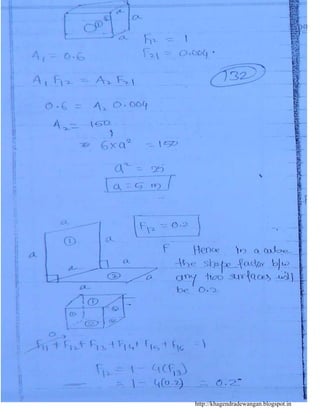 ① a
a
a
F₁₂ = 1
A₁ = 0.6 F₂₁ = 0.004.
132
A₁ F₁₂ = A₂ F₂₁
0.6 = A₂ 0.004
A₂ = 150
6×a² = 150
a² = 25
a = 5 m
a
F₁₂ = 0.2
① a
a
a a
② a
a
Hence in a cube
the shape factor b/w
any two surfaces will
be 0.2
①
F₁₁ + F₁₂ + F₁₃ + F₁₄ + F₁₅ + F₁₆ = 1
F₁₂ = 1 - 4(F₁₃)
= 1 - 4(0.2) = 0.2
http://khagendradewangan.blogspot.in